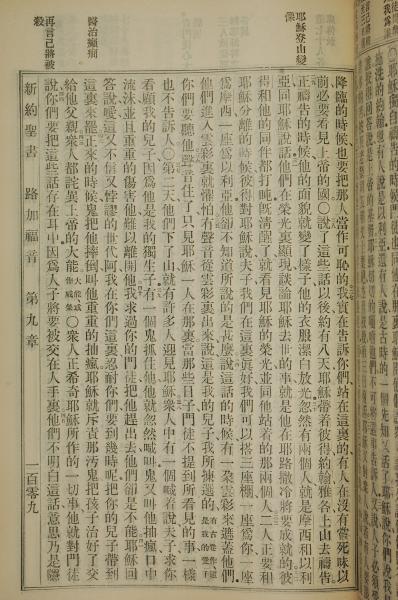 耶穌登山變
像
醫治癲癇
再言己將被
殺
降臨的時候也要把那人當作可恥的我實在告訴你們站在這裏的有人在沒有嘗死味以
前必要看見上帝的國○說了這些話以後約有八天耶穌帶着彼得約翰雅各上山去禱告
正禱告的時候他的面貌就變了樣子他的衣服潔白放光忽然有兩個人就是摩西和以利
亞同耶穌說話他們在榮光裏顯現談論耶穌去世的事就是他在耶路撒冷將要成就的彼
得和他的同伴都打盹旣清醒了就看見耶穌的榮光並同他站着的那兩個人二人正要和
耶穌分離的時候彼得對耶穌說夫子我們在這裏眞好我們可以搭三座棚一座爲你一座
爲摩西一座爲以利亞他卻不知道所說的是甚麼說這話的時候有一朶雲彩來遮蓋他們
他們進入雲彩裏就懼怕有聲音從雲彩裏出來說這是我的兒子我所揀選的有古卷作這是我的愛子
你們要聽他聲音住了只見耶穌一人在那裏當那些日子門徒不提到所看見的事一樣
也不告訴人○第二天他們下了山就有許多人迎見耶穌衆人中有一個喊着說夫子求你
看顧我的兒子因爲他是我的獨生子有一個鬼抓住他他就忽然喊叫鬼又叫他抽瘋口中
流沫並且重重的傷害他難以離開他我求過你的門徒把他趕出去他們卻是不能耶穌回
答說噯這又不信又悖謬的世代阿我在你們這裏忍耐你們要到幾時呢把你的兒子帶到
這裏來罷正來的時候鬼把他摔倒叫他重重的抽瘋耶穌就斥責那汚鬼把孩子治好了交
給他父親衆人都詫異上帝的大能大能或作威榮○衆人正希奇耶穌所作的一切事他就對門徒
說你們要把這些話存在耳中因爲人子將要被交在人手裏他們不明白這話意思乃是隱
新約聖書 路加福音 第九章 一百零九